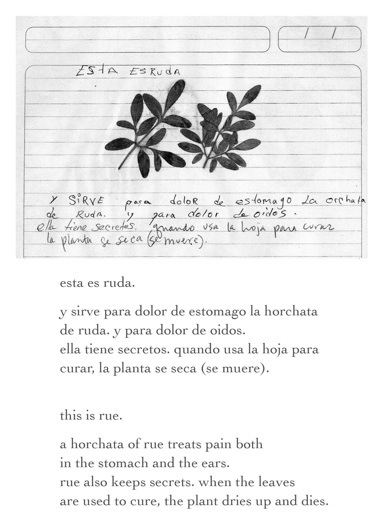 / /
ESTA ESRUDA
Y SIRVE para doloR de estomago La orchata
de RudA. y para doloR de oidos.
ella tiene secretos. quando usa la hoja para curar
la planta se seca (se muere).
esta es ruda.
y sirve para dolor de estomago la horchata
de ruda. y para dolor de oidos.
ella tiene secretos. quando usa la hoja para
curar, la planta se seca (se muere).
this is rue.
a horchata of rue treats pain both
in the stomach and the ears.
rue also keeps secrets. when the leaves
are used to cure, the plant dries up and dies.